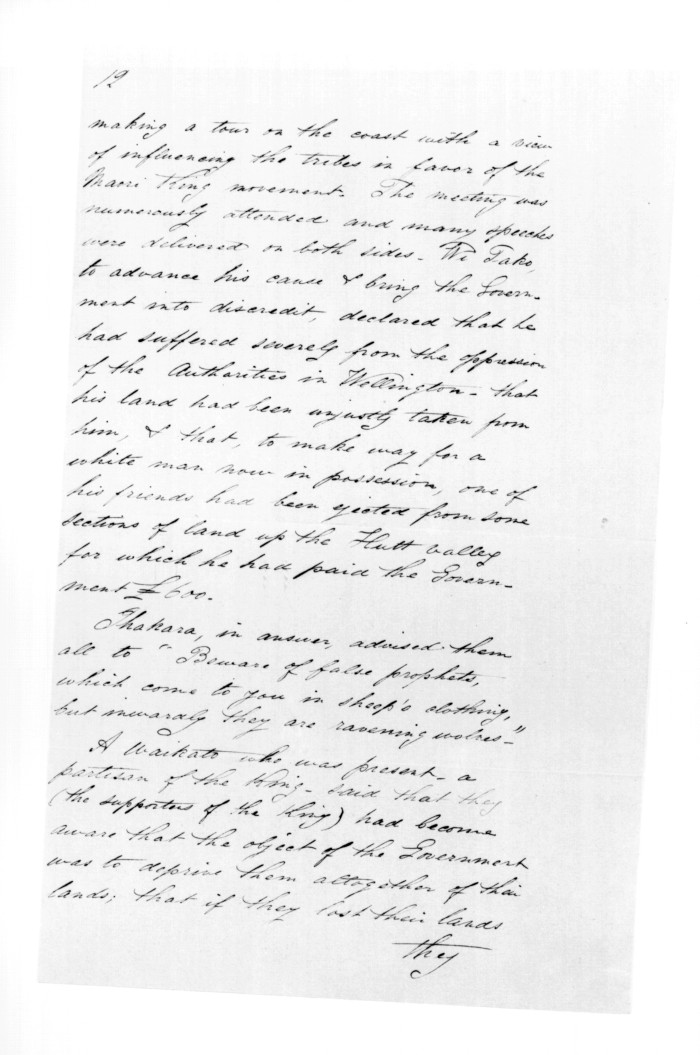 12
making a tour on the coast with a view
of influencing the tribes in favor of the
Maori King movement. The meeting was
numerously attended and many speeches
were delivered on both sides. Wi Tako,
to advance his cause & bring the Govern-
ment into discredit, declared that he
had suffered severely from the oppression
of the Authorities in Wellington - that
his land had been unjustly taken from
him, & that, to make way for a
white man now in possession, one of
his friends had been ejected from some
sections of land up the Hutt valley
for which he had paid the Govern-
ment £600.
Ihakara, in answer, advised them
all to "Beware of false prophets,
which come to you in sheep's clothing,
but inwardly they are ravening wolves-"
A Waikato who was present - a
partisan of the King - said that they
(the supporters of the King) had become
aware that the object of the Government
was to deprive them altogether of their
lands; that if they lost their lands
they